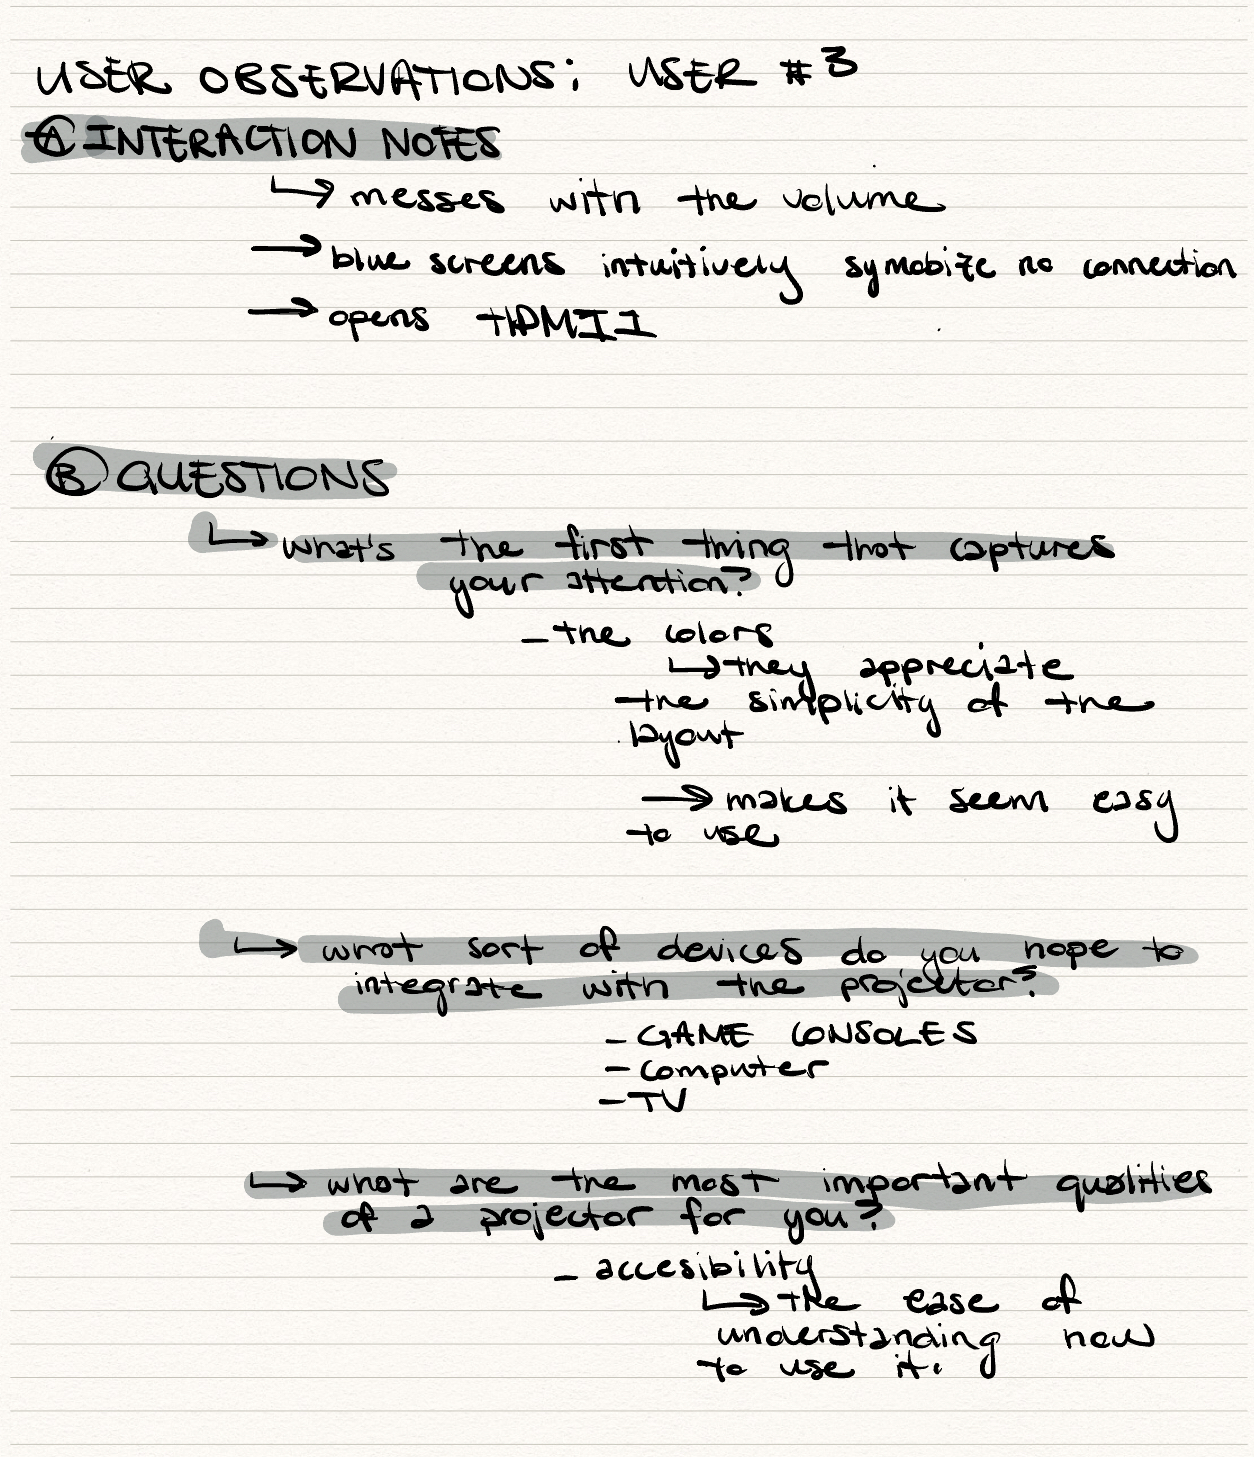 USER OBSERVATIONS: USER #3
Ⓐ INTERACTION NOTES
↳ messes with the volume
→ blue screens intuitively symobize no connection
→ opens HDMI1
Ⓑ QUESTIONS
↳ what's the first thing that captures
your attention?
- the colors
↳ they appreciate
the simplicity of the
layout
→ makes it seem easy
to use
↳ what sort of devices do you hope to
integrate with the projector?
- GAME CONSOLES
- computer
- TV
↳ what are the most important qualities
of a projector for you?
- accesibility
↳ the ease of
understanding how
to use it.